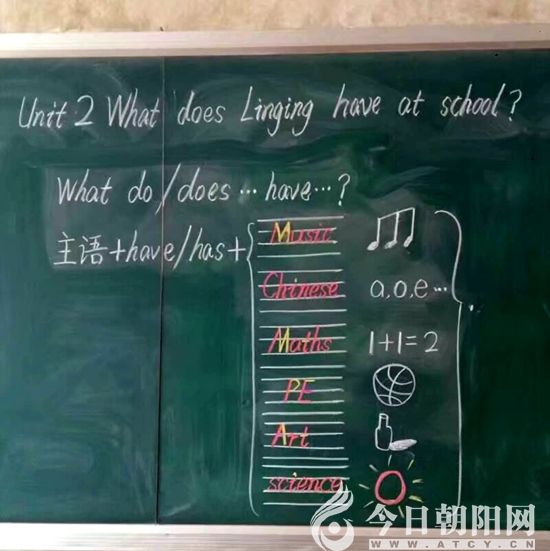 Unit 2 What does Linging have at school?
What do/does … have…?
主语+have/has+
Music
Chinese a,o,e…
Maths 1+1=2
PE
Art
science
今日朝阳网
WWW.ATCY.CN